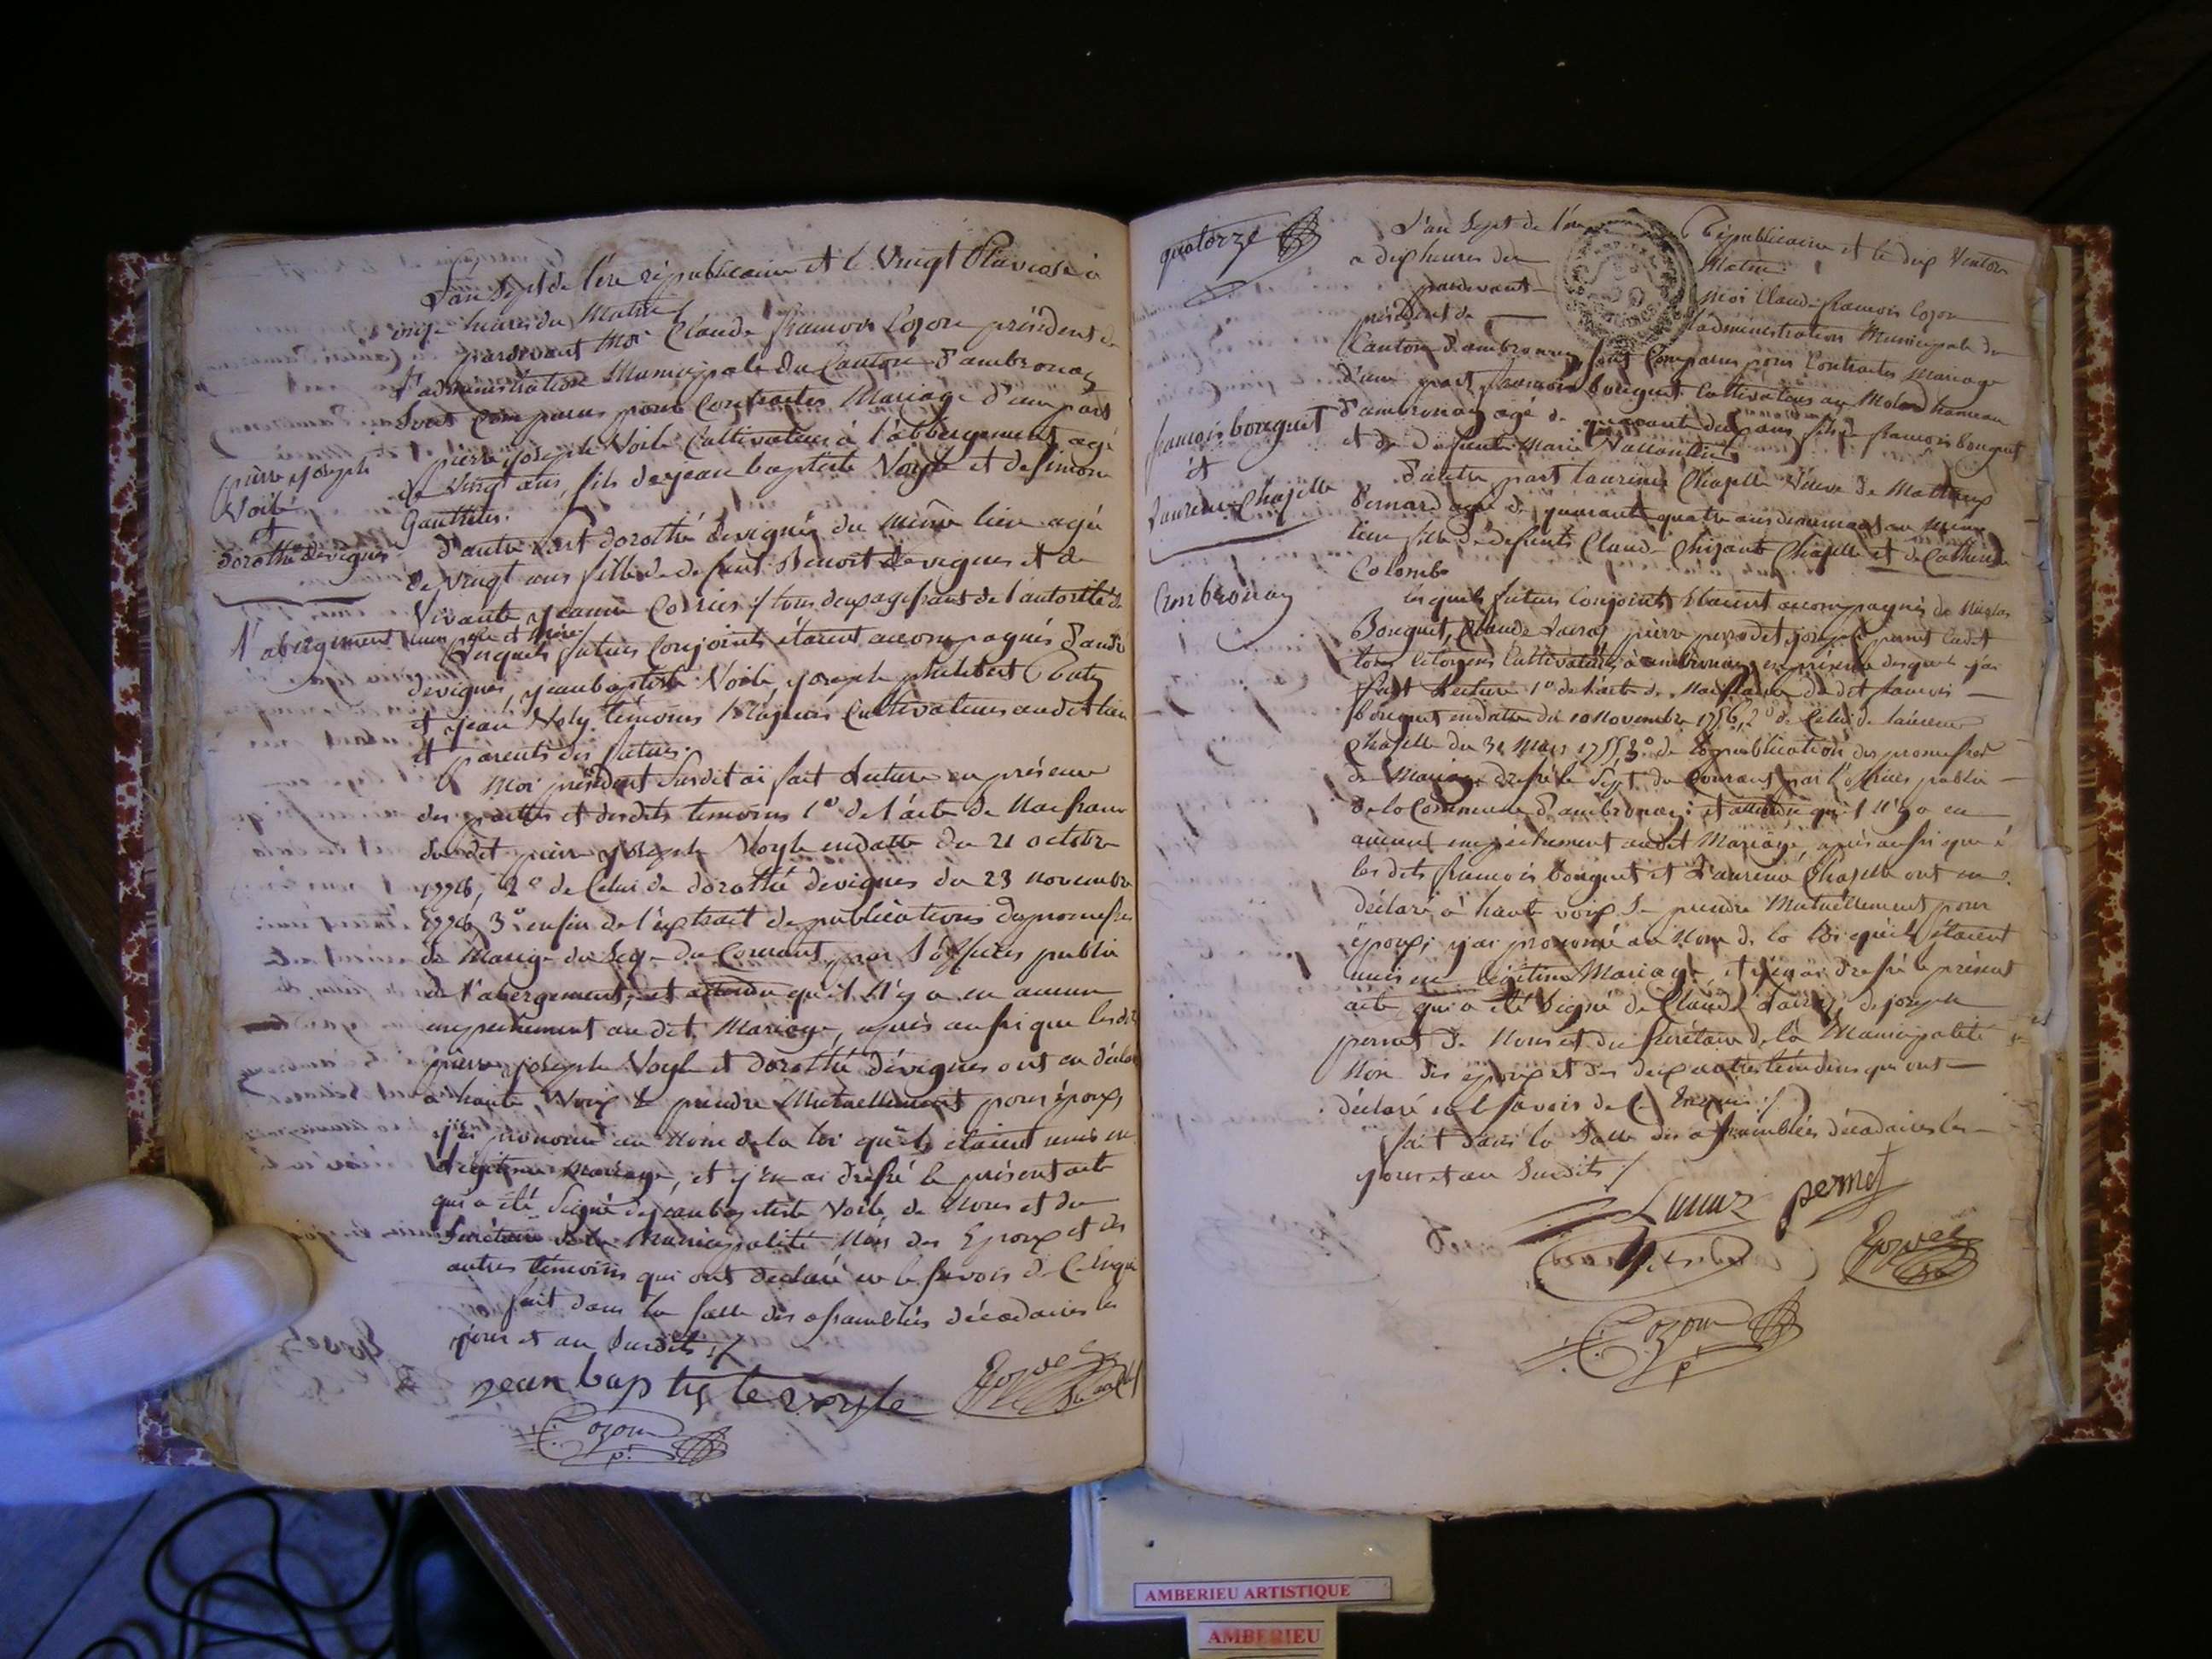 L'an Sept de l'ere republicaine et le Vingt Pluviose à
onze heures du Matin
pardevant Moi Claude francois Cozon président de
l'administration Municipale du Canton d'ambronay
Sont Comparus pour Contracter Mariage d'une part
pierre joseph Voile Cultivateur à l'abbergement agé
de Vingt ans, fils de jean baptiste Voyle et de simone
Gauthier.
pierre joseph
Voile
et
dorothé devignes
l'abergement
d'autre part dorothé devignes du même lieu agée
de vingt ans fille de defunt Benoit devignes et de
Vivante jeanne / tous deux agissant de l'autorité de
leurs père et mère /
Lesquels futurs Conjoints étaient accompagnés d'andré
devignes, jean baptiste Voile, joseph philibert
et jean Voly témoins Majeurs Cultivateurs audit lieu
et parents des futurs.
Moi président Susdit ai fait Lecture en présence
des parties et desdits temoins 1º de l'acte de Naissance
dudit pierre joseph Voyle en datte du 21 octobre
1778, 2º de Celui de dorothé devignes du 23 novembre
1778, 3º enfin de l'extrait de publications des promesses
de Mariage du Seize du Courant, par l'officier public
de l'abergement; et attendu qu'il N'y a eu aucun
empechement au dit Mariage, après aussi que lesdits
pierre joseph Voyle et dorothé devignes ont eu déclaré
a haute Voix se prendre Mutuellement pour époux,
j'ai prononcé au Nom de la loi qu'ils étaient unis en
Légitime Mariage, et j'en ai dressé le présent acte
qui a été Signé de jean baptiste Voile, de Nous et du
Secrétaire de la Municipalité Non des Epoux et des
autres témoins qui ont declaré ne le savoir de Ce Enquis
fait dans la salle des assemblées décadaires les
jour et an Susdits ./.
jean baptiste voyle
Cozon
p.
quatorze
L'an Sept de l'ère Republicaine et le dix Ventose
a dix heures du Matin
pardevant Moi Claude francois Cozon
président de l'administration Municipale du
Canton d'ambronay sont Comparus pour Contracter Mariage
d'une part francois bouquet Cultivateur au Molard hameau
d'ambronay agé de quarante deux ans fils de francois bouquet
et de defunte Marie
francois bouquet
et
Laurence Chapelle
ambronay
d'autre part Laurence Chapelle Veuve de Mathieu
Bernard agée de quarante quatre ans demeurant au même
lieu fille de défunts Claude Chapelle et de Catherine
Colombe
lesquels futurs Conjoints étaient accompagnés de Nicolas
Bouquet, Claude pierre perrodet joseph pernet Cadet
tous Citoyens Cultivateurs à ambronay en présence desquels j'ai
fait Lecture 1º de l'acte de Naissance du dit francois
bouquet en datte du 10 Novembre 1756, 2º de Celui de Laurence
Chapelle du 31 Mars 1755, 3º de la publication des promesses
de Mariage dressée le Sept du Courant par l'officier public
de la Commune d'ambronay; et attendu qu'il N'y a eu
aucun empêchement audit Mariage, après aussi que
les dits francois bouquet et Laurence Chapelle ont eu
déclaré à haute voix Se prendre Mutuellement pour
époux; j'ai prononcé au Nom de la loi qu'ils étaient
unis en légitime Mariage, et j'en ai dressé le présent
acte qui a été Signé de Claude de joseph
pernet de Nous et du Secrétaire de la Municipalité
Non des epoux et des deux autres témoins qui ont
déclaré ne le savoir de Ce Enquis ./.
fait dans la Salle des assemblées décadaires les
jour et an Susdits /.
pernet
Cozon
p.
AMBERIEU ARTISTIQUE
AMBERIEU